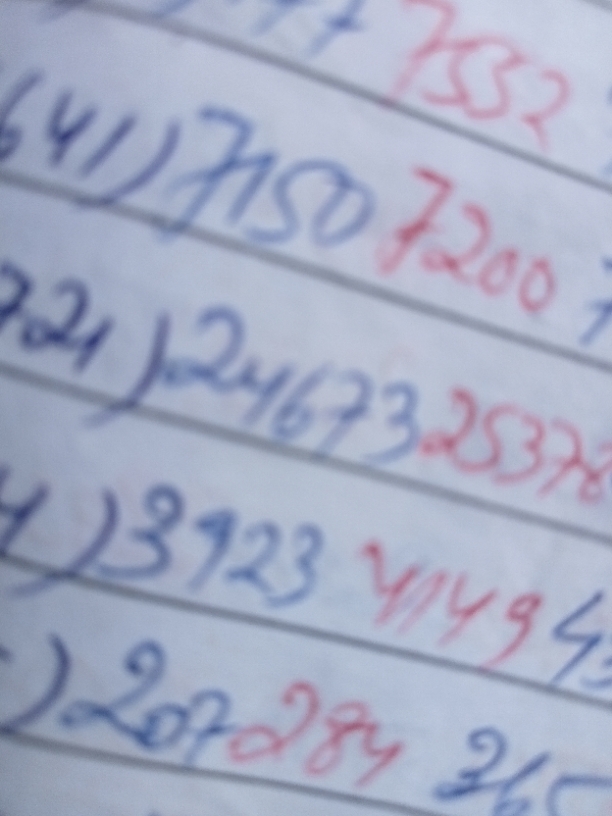 7552
641) 7150 7200
721) 24673 25378
4) 3923 4149
) 207 284 365